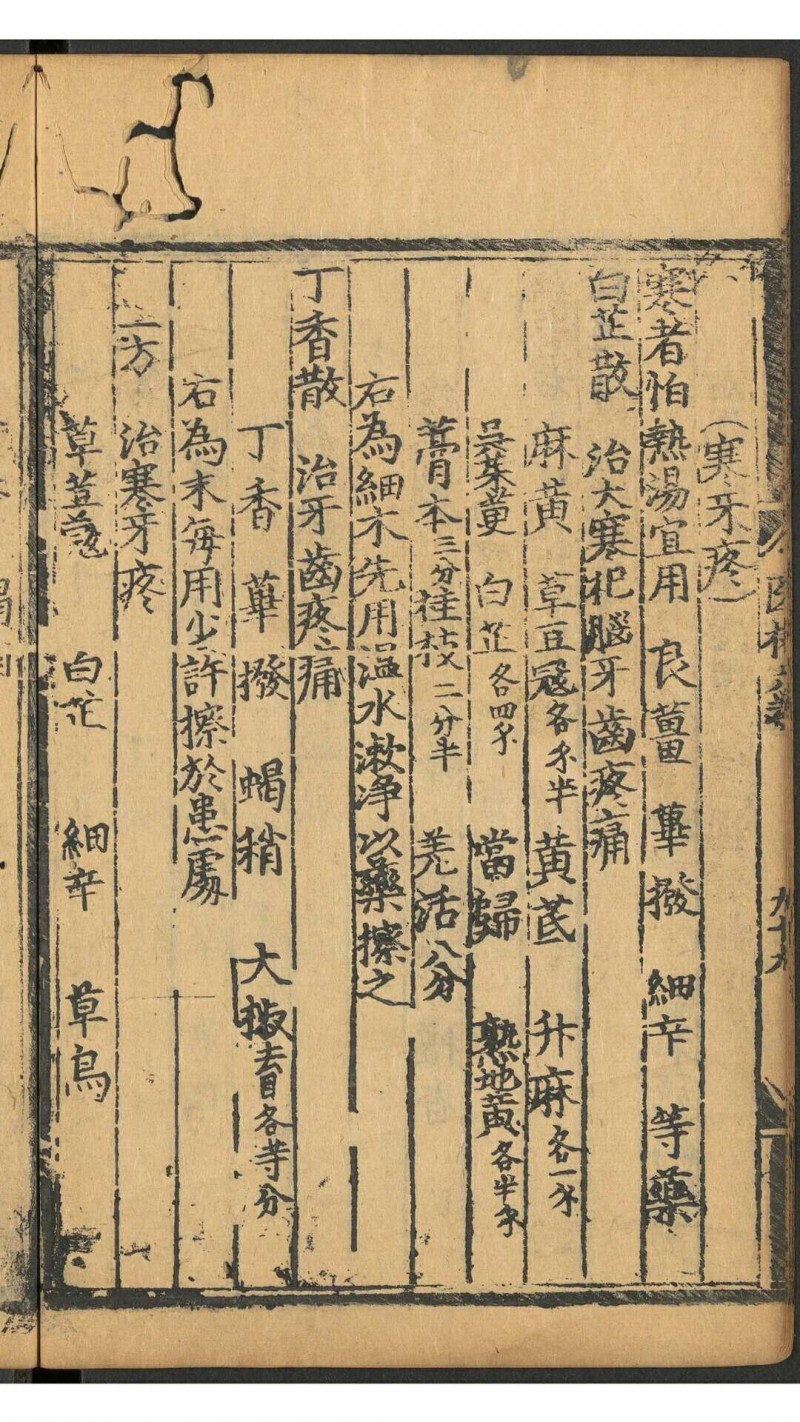 (寒牙疼)
寒者怕熱湯宜用 良薑 蓽撥 細辛 等藥
白芷散 治大寒犯腦牙齒疼痛
麻黃 草豆冦各 半 黃芪 升麻各一
吳茱萸 白芷各四 當歸 熟地黃各半
藁本三分 桂枝二分半 羗活八分
右為細末先用温水漱净以藥擦之
丁香散 治牙齒疼痛
丁香 蓽撥 蝎稍 大椒 各等分
右為末每用少許擦於患處
方 治寒牙疼
草 白芷 細辛 草烏